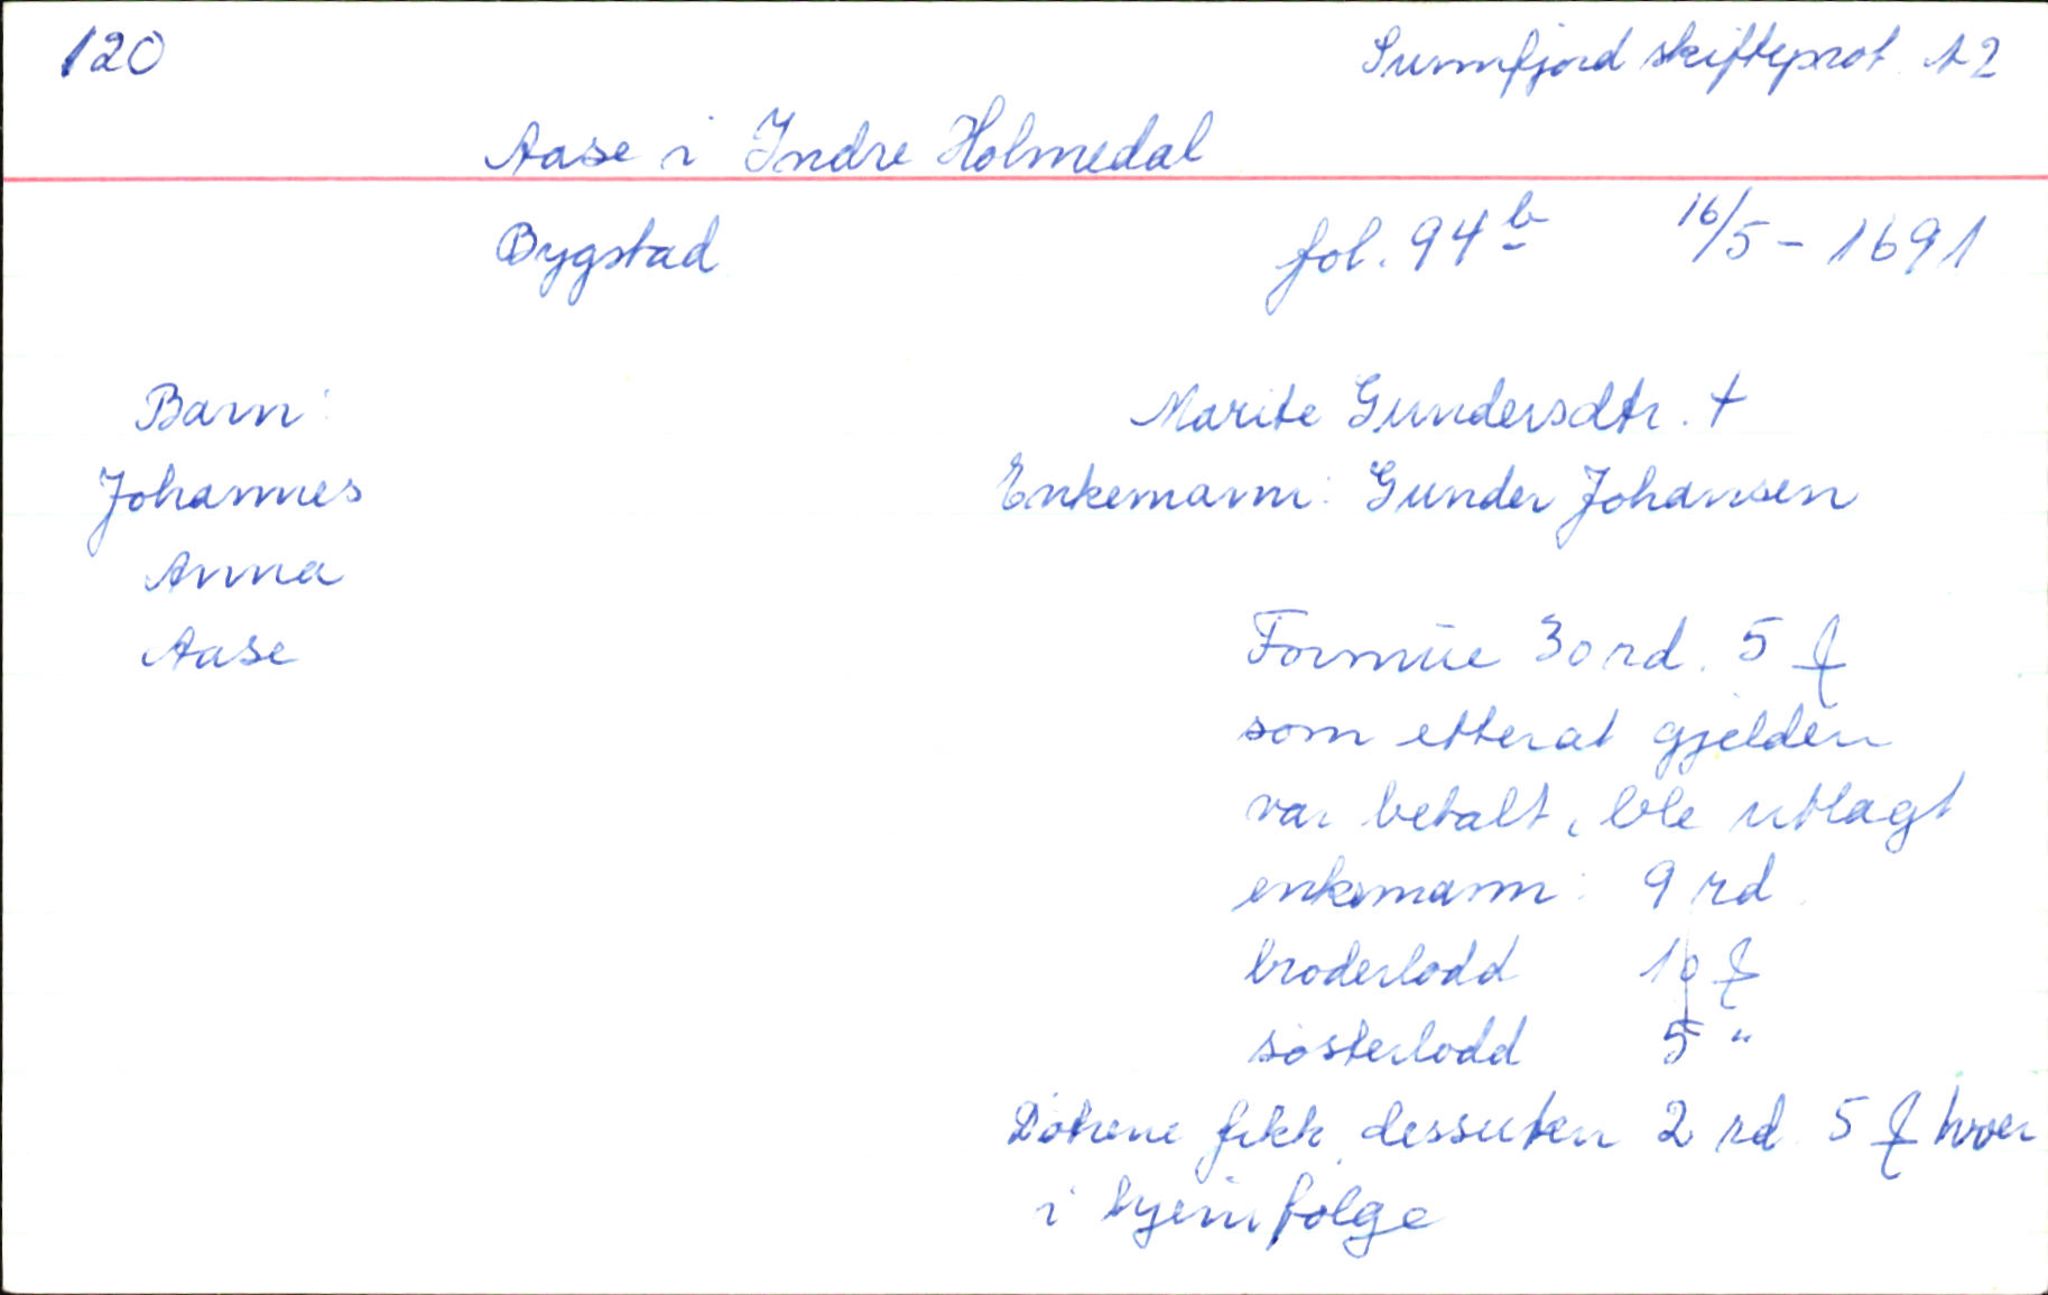 120
Sunnfjord skifteprot. A2
Aase i Indre Holmedal
Bygstad fol. 94 b 16/5 - 1691
Barn: Marite Gundersdtr. †
Johannes Enkemann: Gunder Johansen
Anna
Aase Formue 3 ord. 5 ₰
som etterat gjelden
var betalt, ble utlagt
enkemann: 9 rd
broderlodd 10 ₰
sösterlodd 5 "
Dötrene fikk dessuten 2 rd. 5 ₰ hver
i hjemfölge